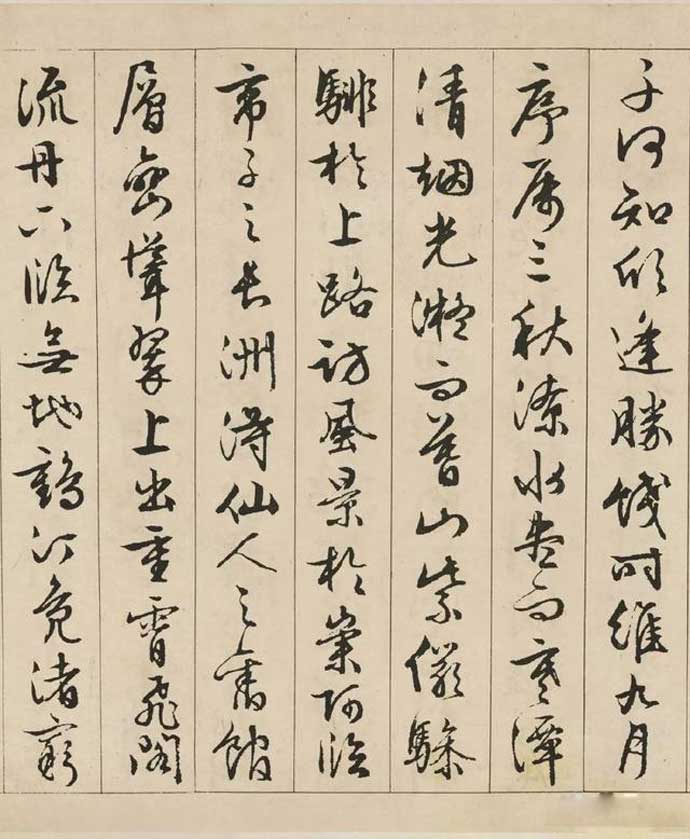 子何知躬逢勝餞時維九月
序屬三秋潦水盡而寒潭
清烟光凝而暮山紫儼驂
騑於上路訪風景於崇阿臨
帝子之長洲得仙人之舊館
層巒聳翠上出重霄飛閣
流丹下臨無地鶴汀鳧渚窮